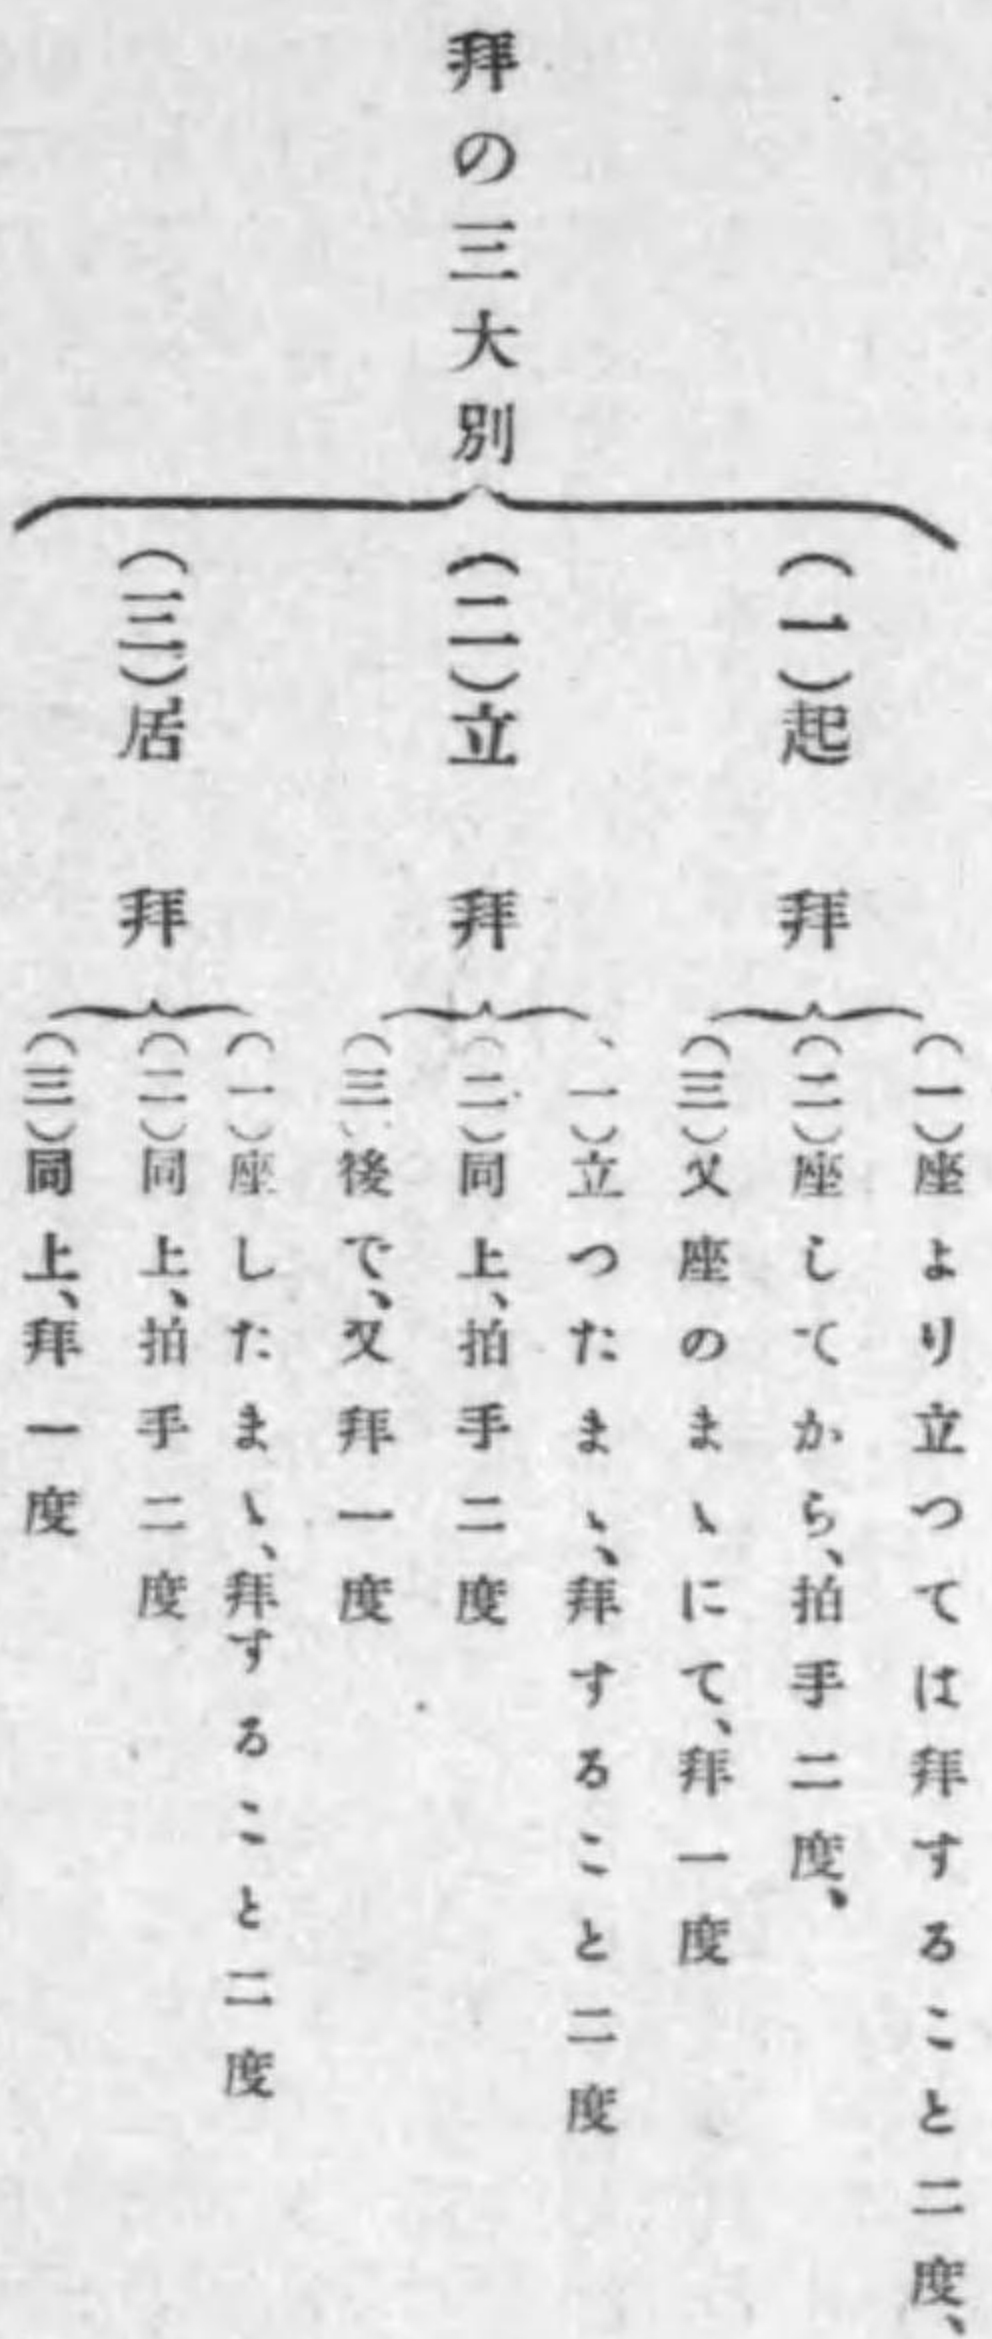 拜の三大別
(一)起拜
(一)座より立つては拜すること二度、
(二)座してから、拍手二度、
(三)又座のまゝにて、拜一度
(二)立拜
(一)立つたまゝ、拜すること二度
(二)同上、拍手二度
(三)後で、又拜一度
(三)居拜
(一)座したまゝ、拜すること二度
(二)同上、拍手二度
(三)同上、拜一度